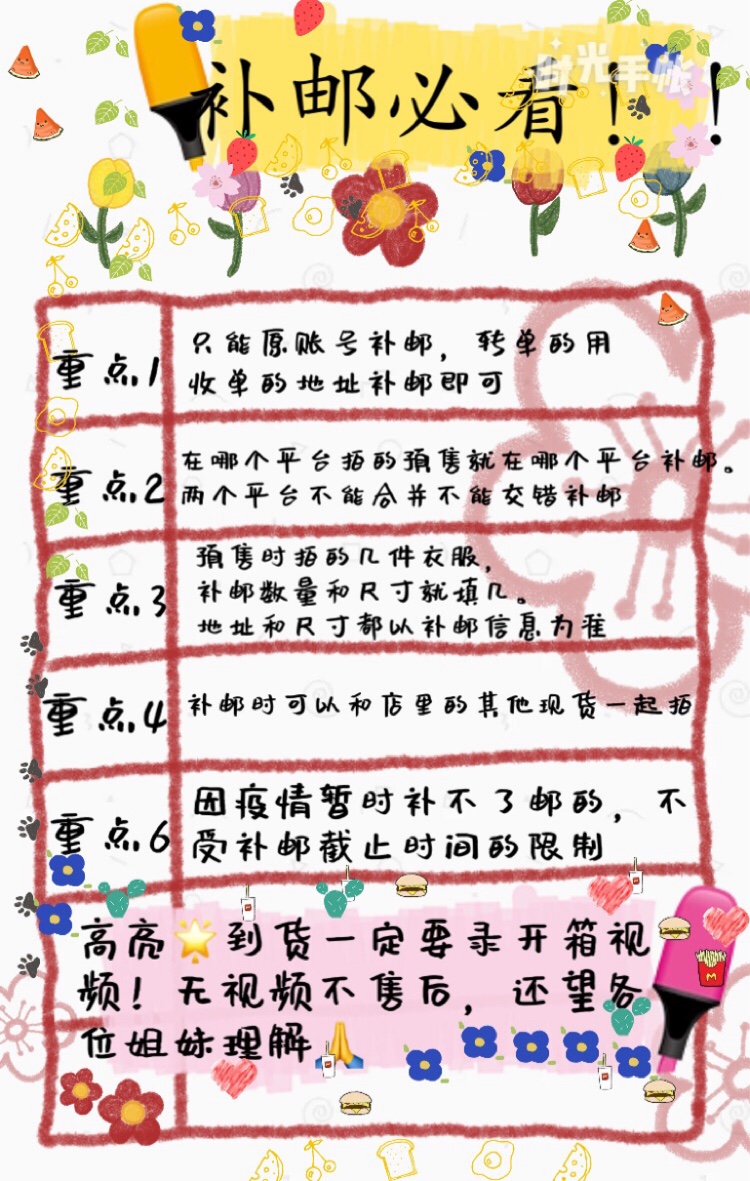 补邮必看！！
时光手帐
重点1
只能原账号补邮，转单的用
收单的地址补邮即可
重点2
在哪个平台拍的预售就在哪个平台补邮。
两个平台不能合并不能交错补邮
重点3
预售时拍的几件衣服，
补邮数量和尺寸就填几。
地址和尺寸都以补邮信息为准
重点4
补邮时可以和店里的其他现货一起拍
重点6
因疫情暂时补不了邮的，不
受补邮截止时间的限制
高亮🌟到货一定要录开箱视
频！无视频不售后，还望各
位姐妹理解🙏